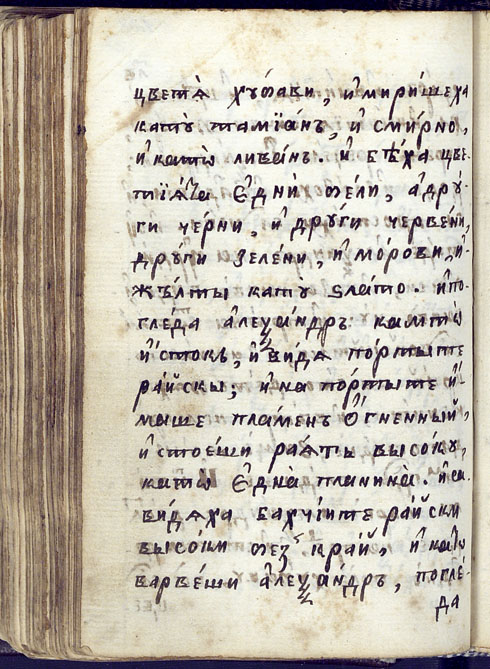 цветѧ̀ хꙋбави, и҆ мири́шеха
като̀ тамїа́нъ, и҆ сми́рно,
и҆ катѡ̀ лива́нъ. и҆ бѣ́ха цве-
тїѧ́та є҆днѝ бели, а҆ дрꙋ́-
ги че́рни, и҆ дрꙋ́ги черве́ни,
дрꙋ́ги зеле́ни, и҆ мо́рови, и҆
жъ́лты катꙋ ѕла́то. и҆ по-
гле́да а҆леѯа́ндръ камтѡ̀
и҆́стокъ, и҆ ви́дѧ по́ртыте
ра́йскы; и҆ на по́ртыте и҆́-
маше пла́менъ ѻ҆́гненный,
и҆ стое́ши раѧ́тъ высо́кꙋ,
катѡ̀ є҆дна̀ планина̀. и҆ са
ви́дѧха бахчїи́те ра́йски
высо́ки без̾ кра́й, и҆ катѡ̀
варве́ши а҆леѯа́ндръ, погле́-
да